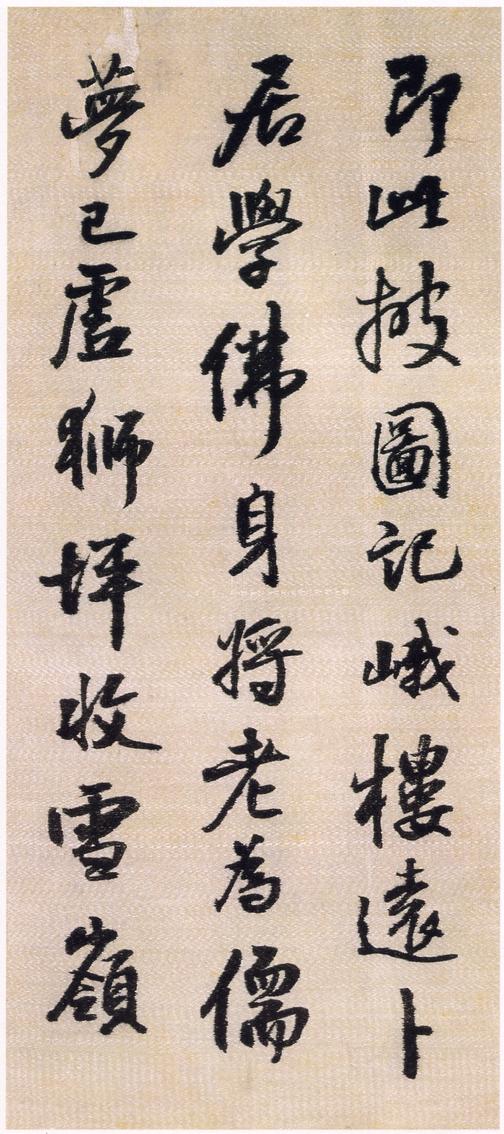 即此披圖記峨樓遠卜
居學佛身將老為儒
夢已虛獅坪收雪嶺